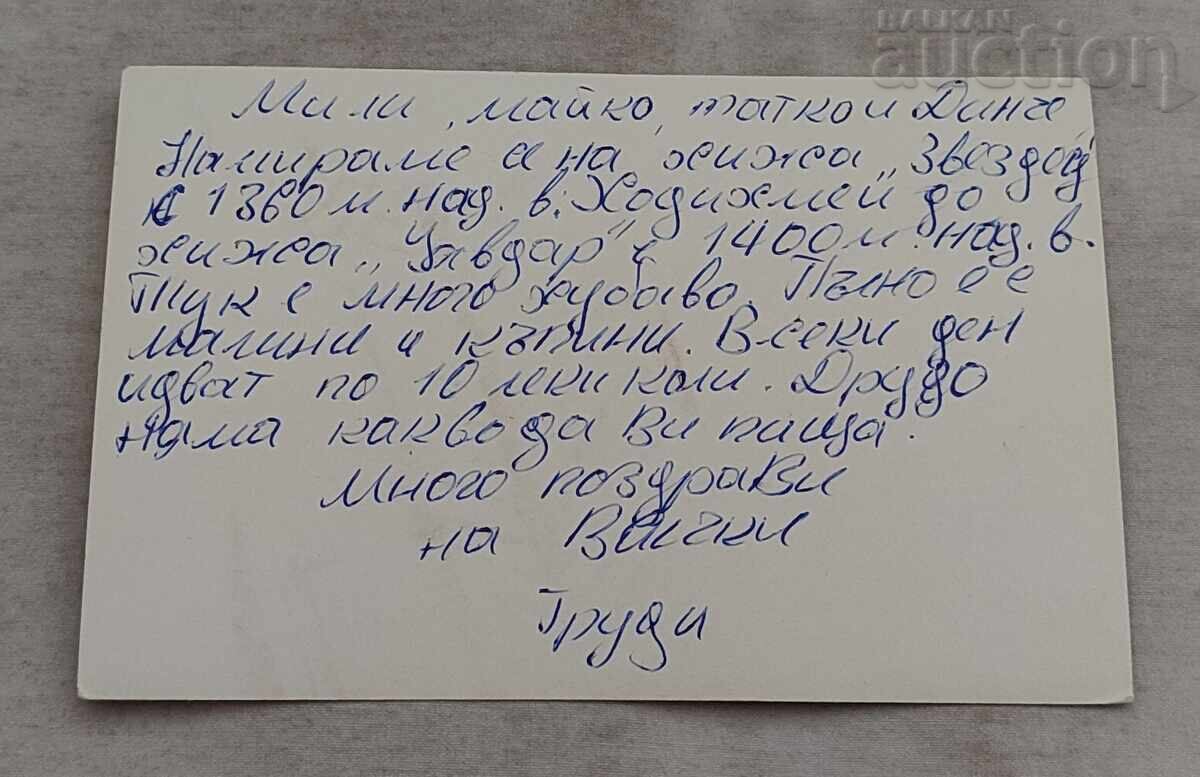 BALKAN
auction
Мили, майко, татко и Динче
Намираме се на хижа „Звезда“
с 1360 м. над. в. Ходихмей до
хижа „Чавдар“ с 1400 м. над. в.
Тук е много хубаво. Пълно е с
малини и къпини. Всеки ден
идват по 10 леки коли. Друго
няма какво да Ви пиша.
Много поздрави
на Всички
Груди